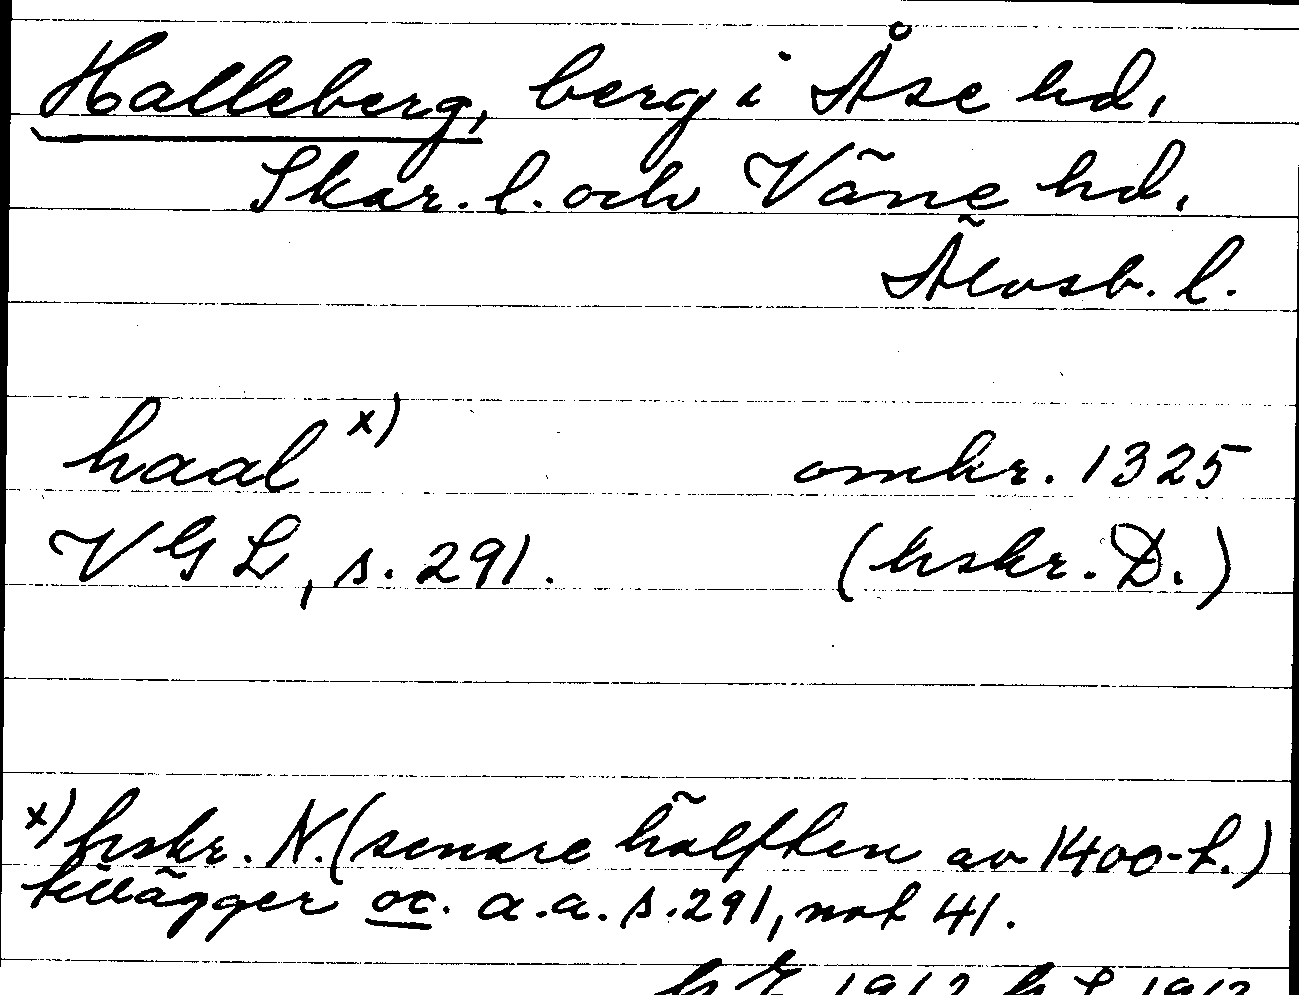 Halleberg, berg i Åse hd,
Skar. l. och Väne hd,
Älvsb. l.
haal x) omkr. 1325
VGL, s. 291. (hskr. D.)
x) hskr. N. (senare hälften av 1400-t.)
tillägger oc. a.a. s. 291, not 41.